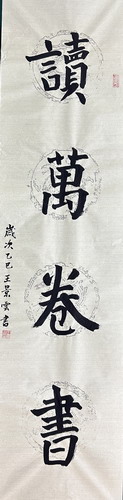 讀萬卷書
歲次乙巳王景雲書